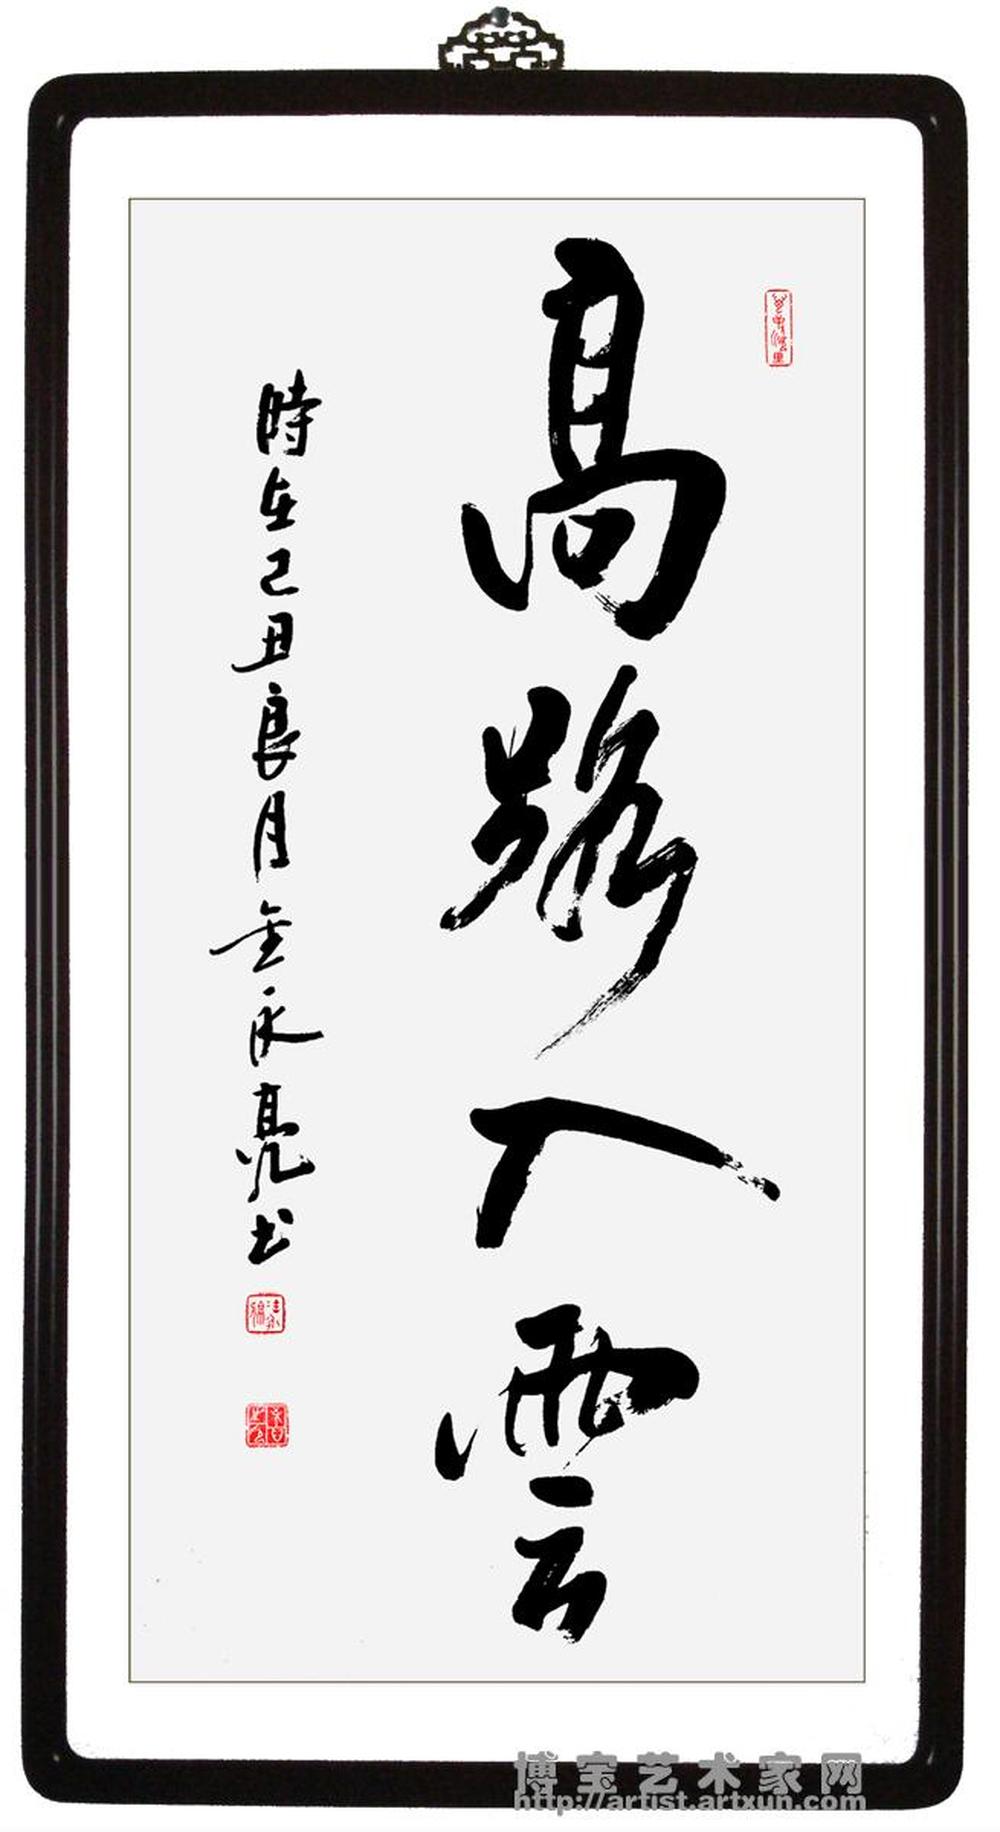 高路入雲
時在己丑良月金永亮书
博宝艺术家网
http://artist.artxun.com